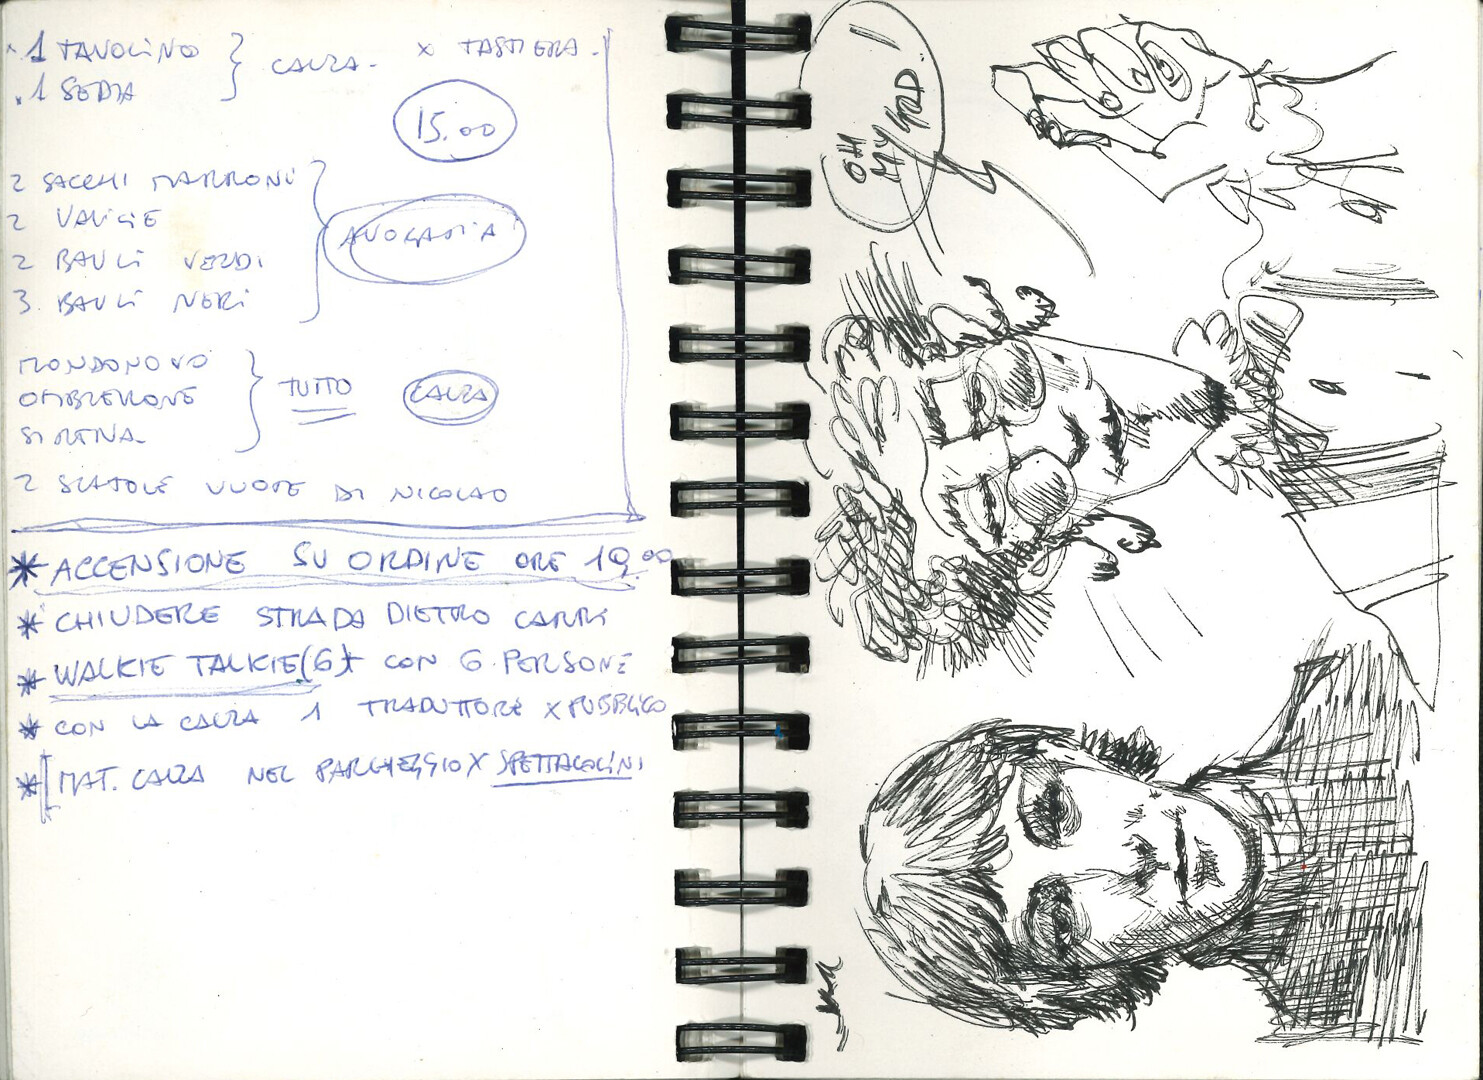 1 TAVOLINO } CALZA - x TASTIERA -
.1 SEDIA
15.00
2 SACCHI MARRONI
2 VALIGIE
2 BAULI VERDI
3. BAULI NERI
MONDONOVO
OMBRERONE } TUTTO CALZA
SIRENA
2 SCATOLE VUOTE DI NICOLAO
* ACCENSIONE SU ORDINE ORE 19.00
* CHIUDERE STRADA DIETRO CARRI
* WALKIE TALKIE (6) CON 6 PERSONE
* CON LA CALZA 1 TRADUTTORE X PUBBLICO
* MAT. CALZA NEL PARCHEGGIO X SPETTACOLINI
OH
MY
!